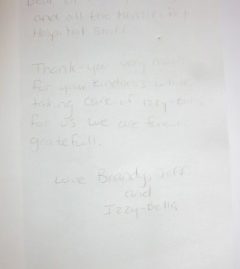 Dear Dr
and all the
Hospital Staff
Thank-you very much
for your kindness while
taking care of Izzy-Bella
for us we are forever
gratefull.
Love Brandy, Jeff
and
Izzy-Bella